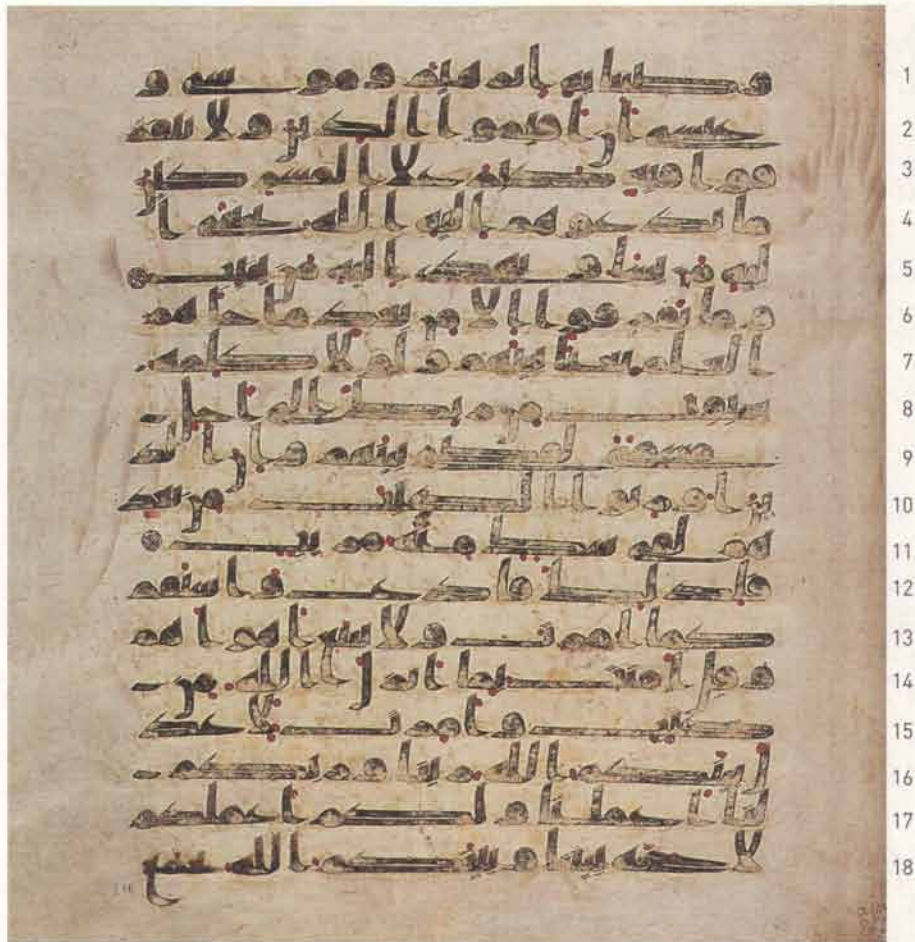 وصينا به ابرهيم وموسى و 1
عيسى ان اقيموا الدين ولا تتفر 2
قوا فيه كبر على المشركين 3
ما تدعوهم اليه الله يجتبي ا 4
ليه من يشا ويهدي اليه من ينيب 5
وما تفرقوا الا من بعد ما جاهم 6
العلم بغيا بينهم ولولا كلمة 7
سبقت من ربك الى اجل 8
مسمى لقضي بينهم وان الذ 9
ين اورثوا الكتب من بعد 10
هم لفي شك منه مريب 11
فلذلك فادع واستقم 12
كما امرت ولا تتبع اهواهم 13
وقل امنت بما انزل الله من 14
كتب وامرت لاعد 15
ل بينكم الله ربنا وربكم 16
لنا اعملنا ولكم اعملكم 17
لا حجة بيننا وبينكم الله يجمع 18